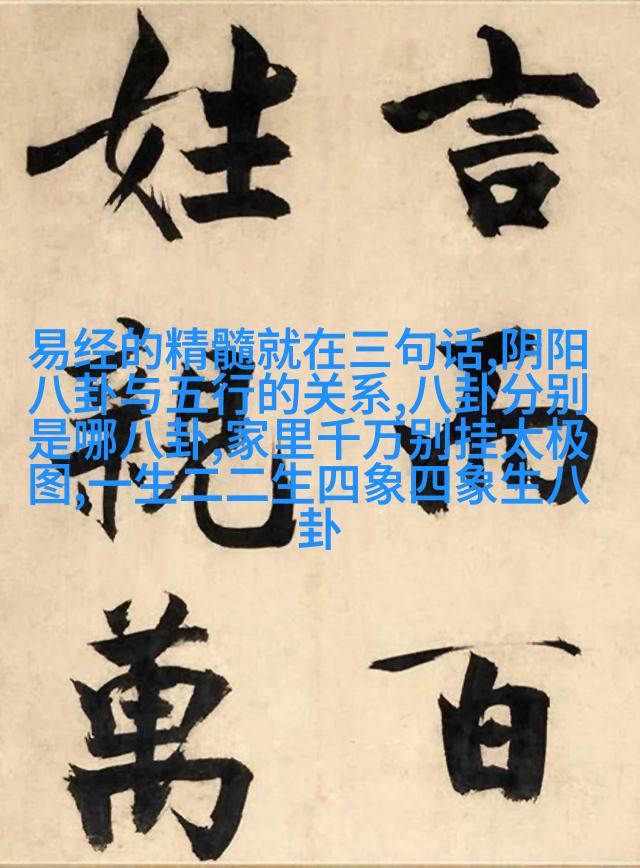 言而百
姓親萬
易经的精髓就在三句话,阴阳
八卦与五行的关系,八卦分别
是哪八卦,家里千万别挂太极
图,一生二二生四象四象生八
卦